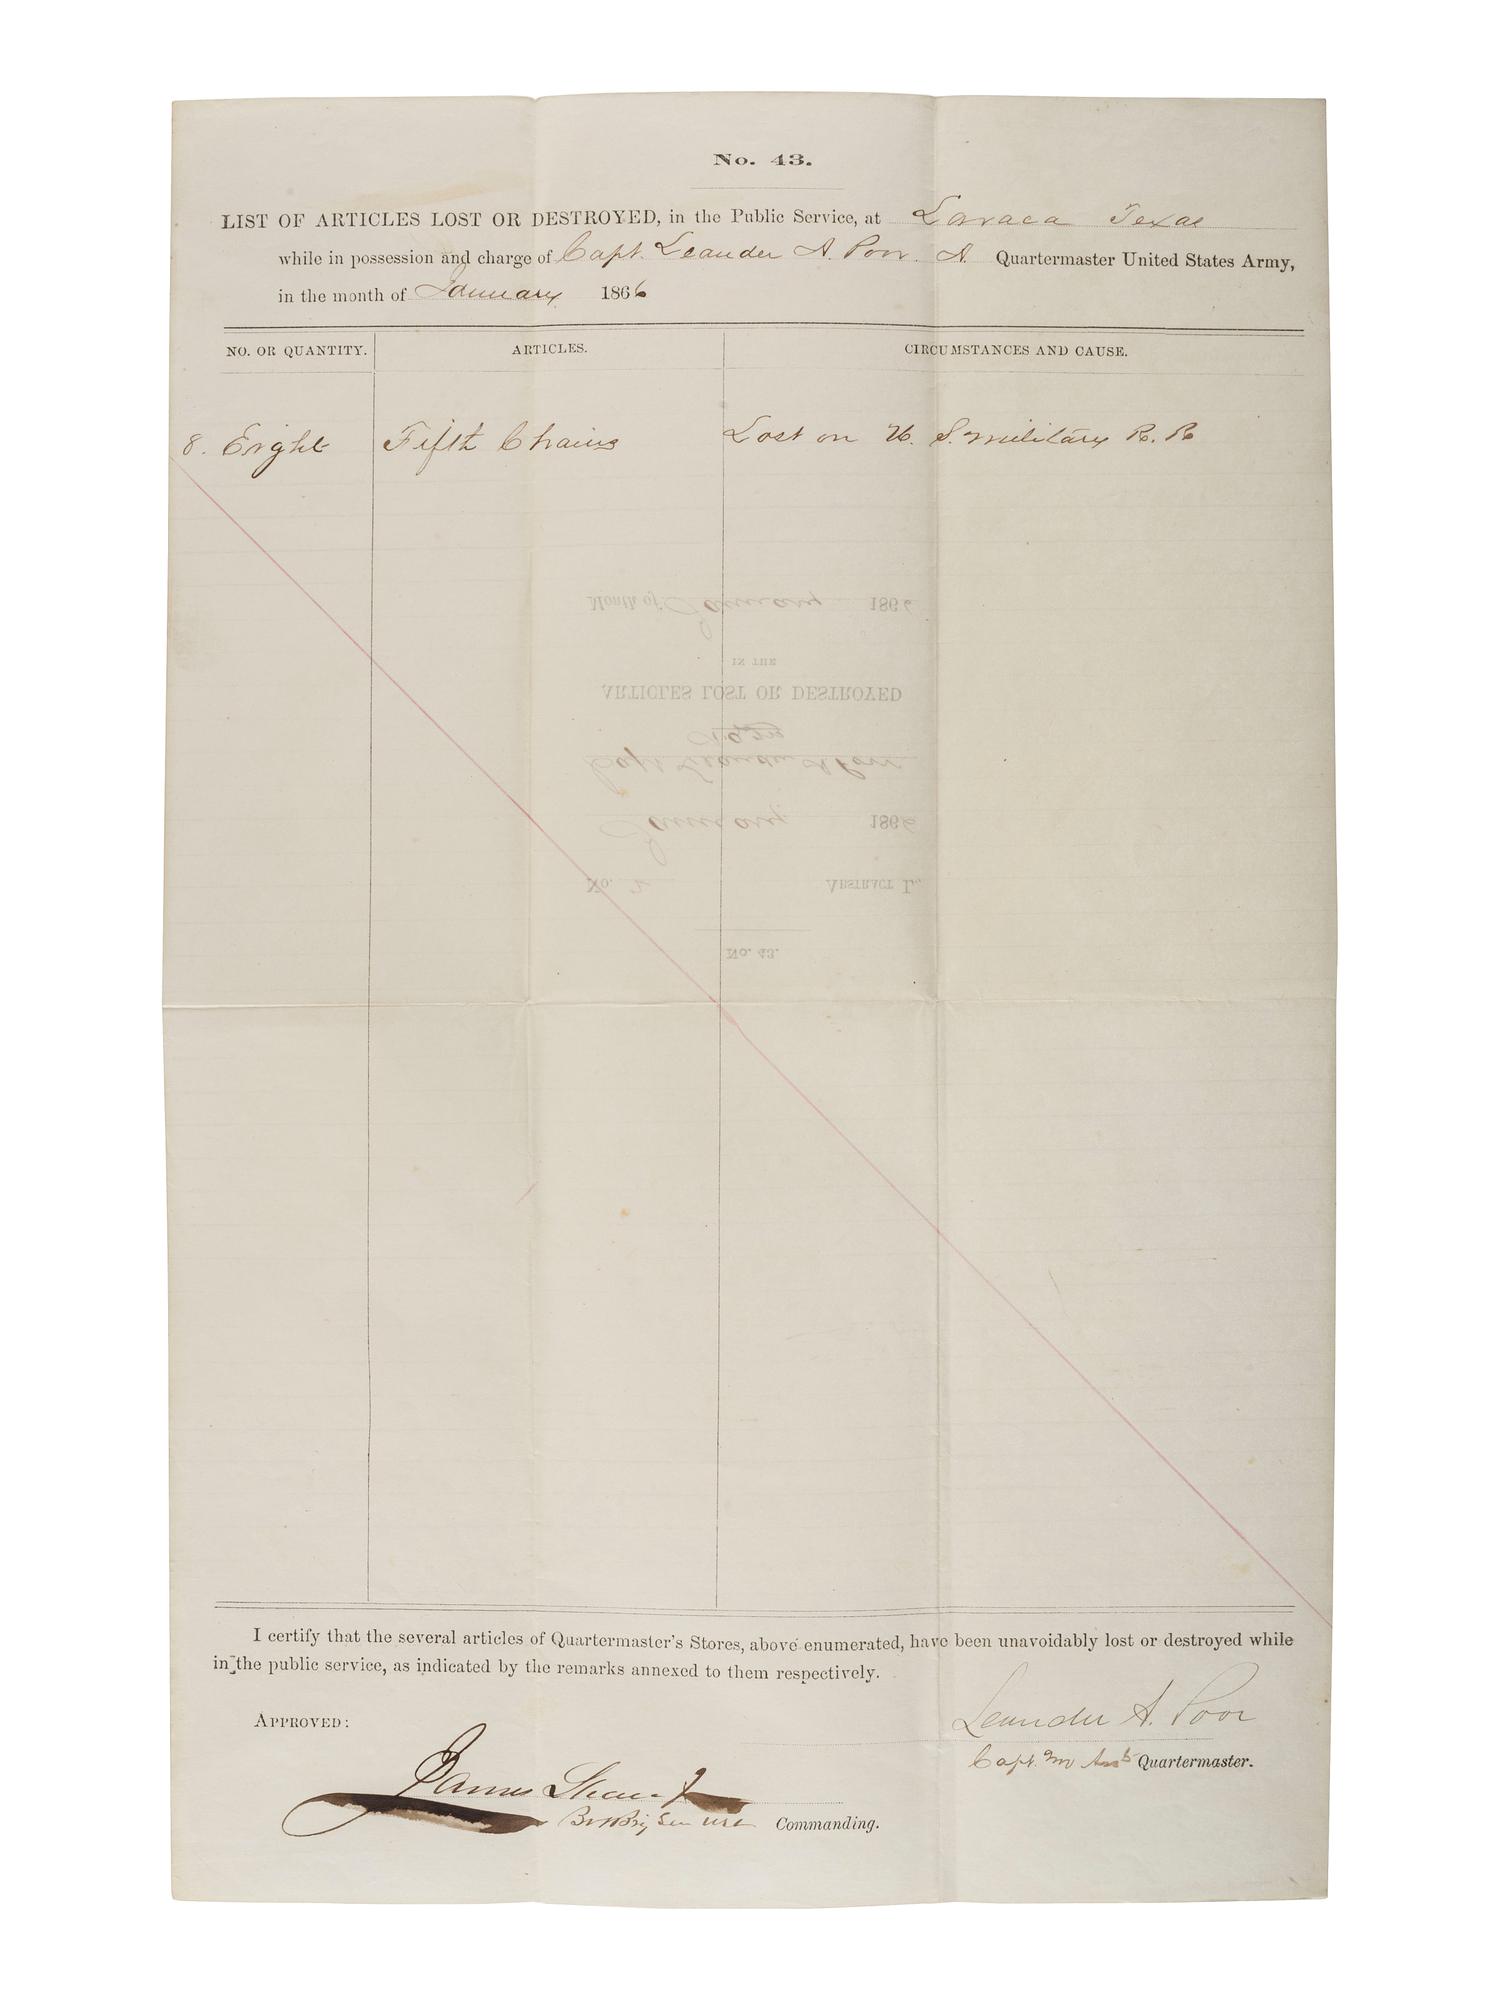 No. 43.
LIST OF ARTICLES LOST OR DESTROYED, in the Public Service, at Lavaca Texas
while in possession and charge of Capt. Leander A. Poor. A. Quartermaster United States Army,
in the month of January 1866
NO. OR QUANTITY. ARTICLES. CIRCUMSTANCES AND CAUSE.
8. Eight Fifth Chains Lost on U. S. military R. R
Month of January 1866
IN THE
ARTICLES LOST OR DESTROYED
Capt Leander A Poor
January 1866
No. 2 ABSTRACT L.
No. 43.
I certify that the several articles of Quartermaster's Stores, above enumerated, have been unavoidably lost or destroyed while
in the public service, as indicated by the remarks annexed to them respectively.
Leander A. Poor
APPROVED:
Capt. Quartermaster.
James Shaw Jr
Bvt Brig Gen Commanding.